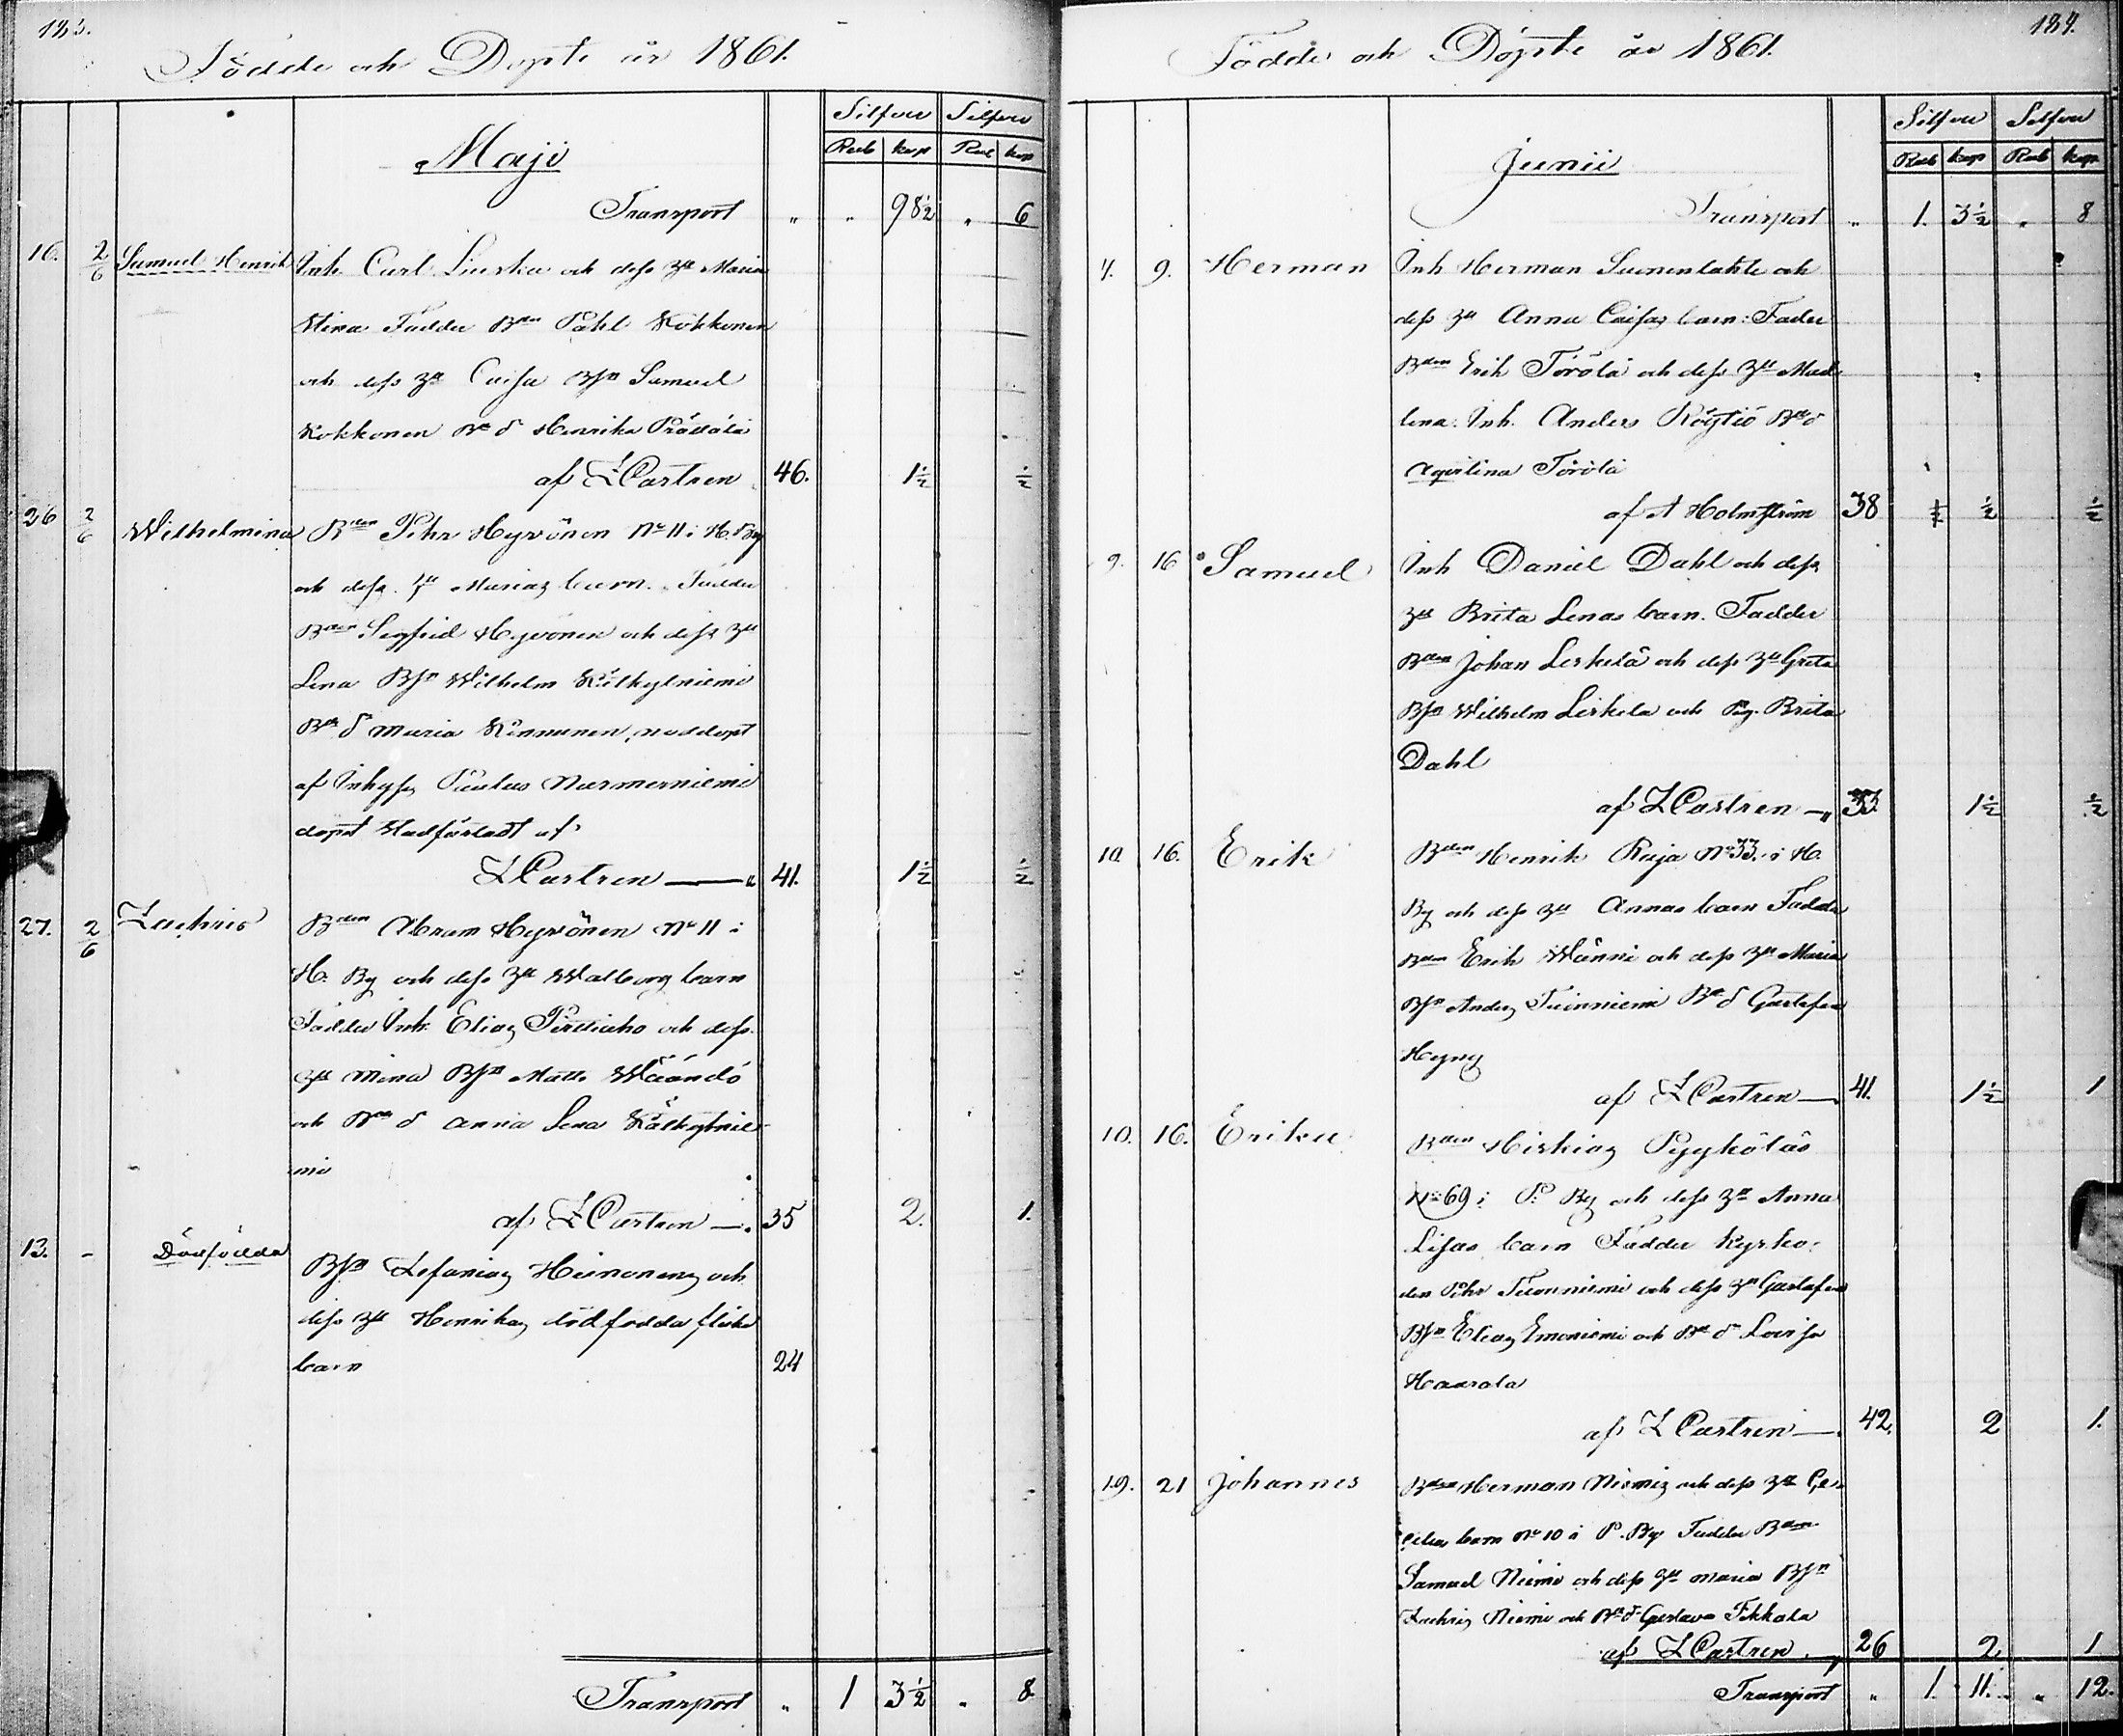 183.
Födde och Döpte år 1861.
Silfver Silfver
Maji
Rub kop Rub kop
Transport " " 98½ " 6
16. 2/6 Samuel Henrik Inh. Carl Liuska och dess hu Maria
Stina Fadder Bden Påhl Kokkonen
och dess hu Caisa BSn Samuel
Kokkonen Be d Henrika Prädälä
af Z Castren 46. 1½ ½
26 2/6 Wilhelmina Bden Pehr Hyvönen No 11 i H. By
och dess hu Marias barn. Fadder
Bden Sigfrid Hyvönen och dess hu
Lena BSn Wilhelm Kälkylniemi
Be d Maria Kinnunen, noddöpt
af Inhyses Paulus Nurmenniemi
döpet Stadfästadt af
Z Castren — " 41. 1½ ½
27. 2/6 Zachris Bden Abram Hyvönen No 11 i
H. By och dess hu Walborg barn
Fadder Inh. Elias Perttuaho och dess
hu Mina BSn Matts Väändö
och Be d Anna Lena Kälkylnie
mi
af Z Castren —. 35 2. 1.
13. - Dödfödda BSn Zefanias Heinonens och
dess hu Henrikas dödfödda flicko
barn 24
Transport " 1 3½ " 8
184.
Födde och Döpte år 1861.
Silfver Silfver
Junii
Rub kop Rub kop
Transport " 1. 3½ " 8
7. 9. Herman Inh Herman Suomenlahti och
dess hu Anna Caisas barn: Fader
Bden Erik Törölä och dess hu Mad
lena. Inh. Anders Köytiö Be d
Aqvilina Törölä
af A Holmström 38 ½ ½
9. 16 Samuel Inh Daniel Dahl och dess
hu Brita Lenas barn. Fadder
Bden Johan Leskelä och dess hu Greta
BSn Wilhelm Leskelä och Pig. Brita
Dahl
af Z Castren —" 33. 1½ ½
10. 16. Erik Bden Henrik Raja No 33. i H.
By och dess hu Annas barn Fadder
Bden Erik Wänni och dess hu Maria
BSn Anders Tuinniemi Be d Gustafva
Heyny
af Z Castren —. 41. 1½ 1
10. 16. Erika Bden Hiskias Pyyköläs
No 69 i P. By och dess hu Anna
Lisas barn Fadder Kyrko-
den Pehr Tuonniemi och dess hu Gustafva
BSn Elias Emoniemi och Be d Lovisa
Haarala
af Z Castren —. 42. 2 1.
19. 21 Johannes Bden Herman Niemis och dess hu Ce
celias barn No 10 i P. By Fadder Bden
Samuel Niemi och dess hu Maria BSn
Zachris Niemi och Be d Gustava Tikkala
af Z Castren 26 2 1
Transport " 1. 11. " 12.